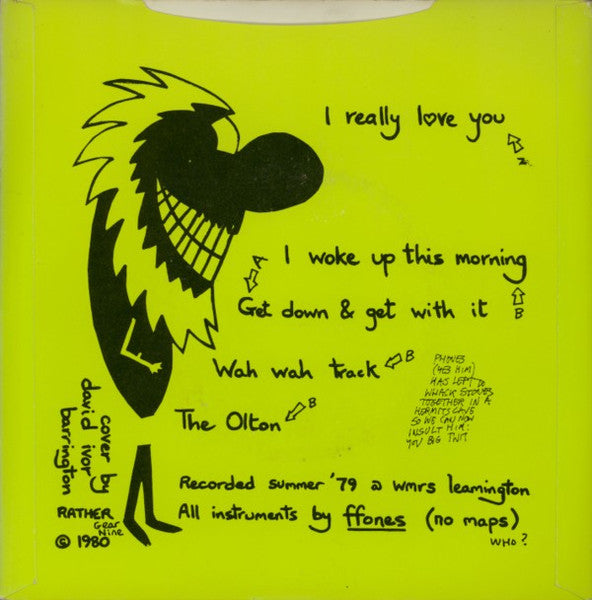 I really love you
A
A
I woke up this morning
Get down & get with it
B
Wah wah track
B
The Olton
B
PHONES
(YES HIM)
HAS LEFT TO
WHACK STONES
TOGETHER IN A
HERMITS CAVE
SO WE CAN NOW
INSULT HIM:
YOU BIG TWIT
cover by
david ivor
barrington
RATHER
Gear
Nine
© 1980
Recorded summer '79 @ wmrs leamington
All instruments by ffones (no maps)
WHO?